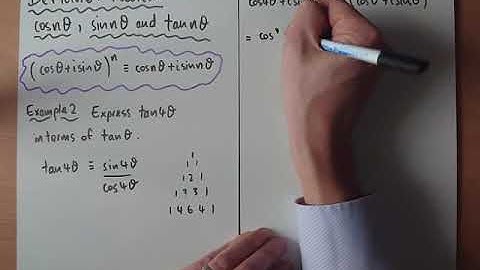 cosnθ, sinnθ and tannθ
(cosθ+isinθ)ⁿ ≡ cosnθ+isinnθ
Example 2 Express tan4θ
in terms of tanθ.
tan4θ ≡ sin4θ
cos4θ
1
1 1
1 2 1
1 3 3 1
1 4 6 4 1
cos4θ+isin
(cosθ+isinθ)
= cos⁴